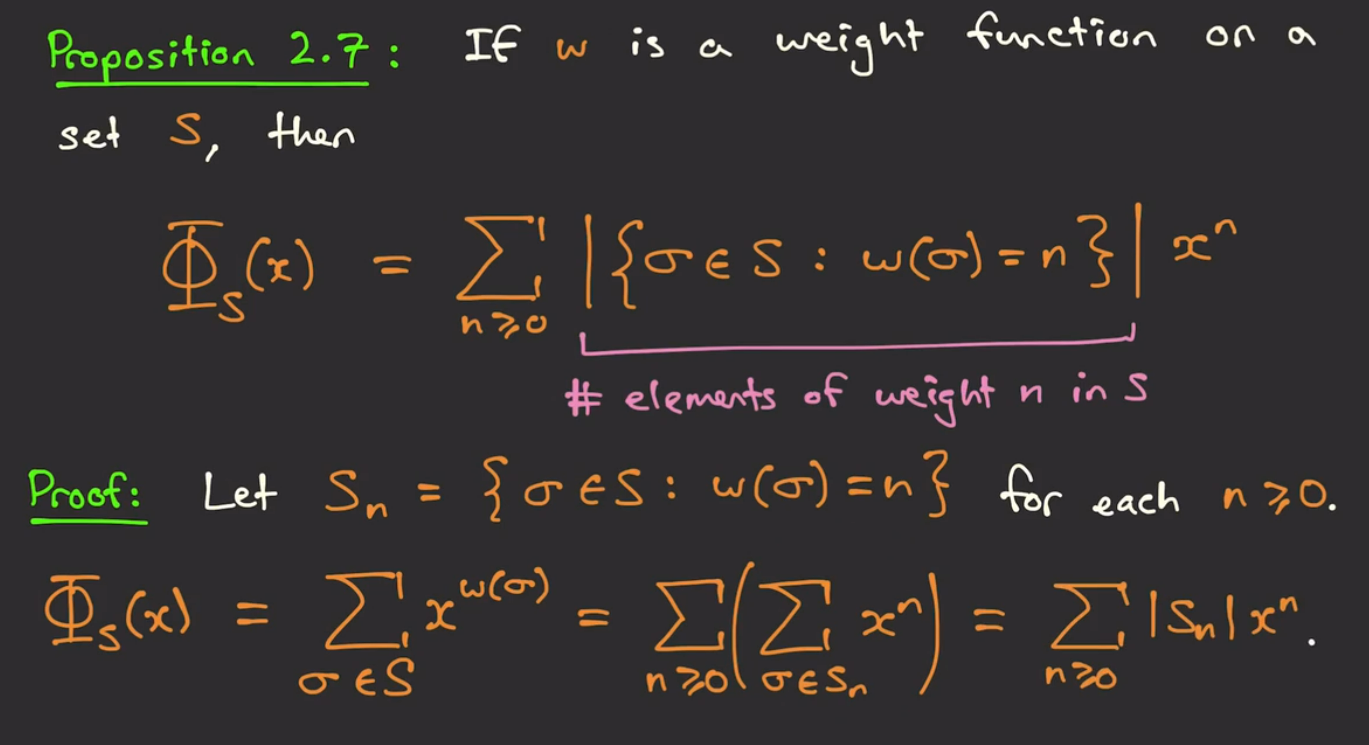 Proposition 2.7: If w is a weight function on a
set S, then
Φ_S(x) = ∑_{n⩾0} |{σ∈S : w(σ)=n}| x^n
# elements of weight n in S
Proof: Let S_n = {σ∈S : w(σ)=n} for each n⩾0.
Φ_S(x) = ∑_{σ∈S} x^{w(σ)} = ∑_{n⩾0} (∑_{σ∈S_n} x^n) = ∑_{n⩾0} |S_n| x^n.